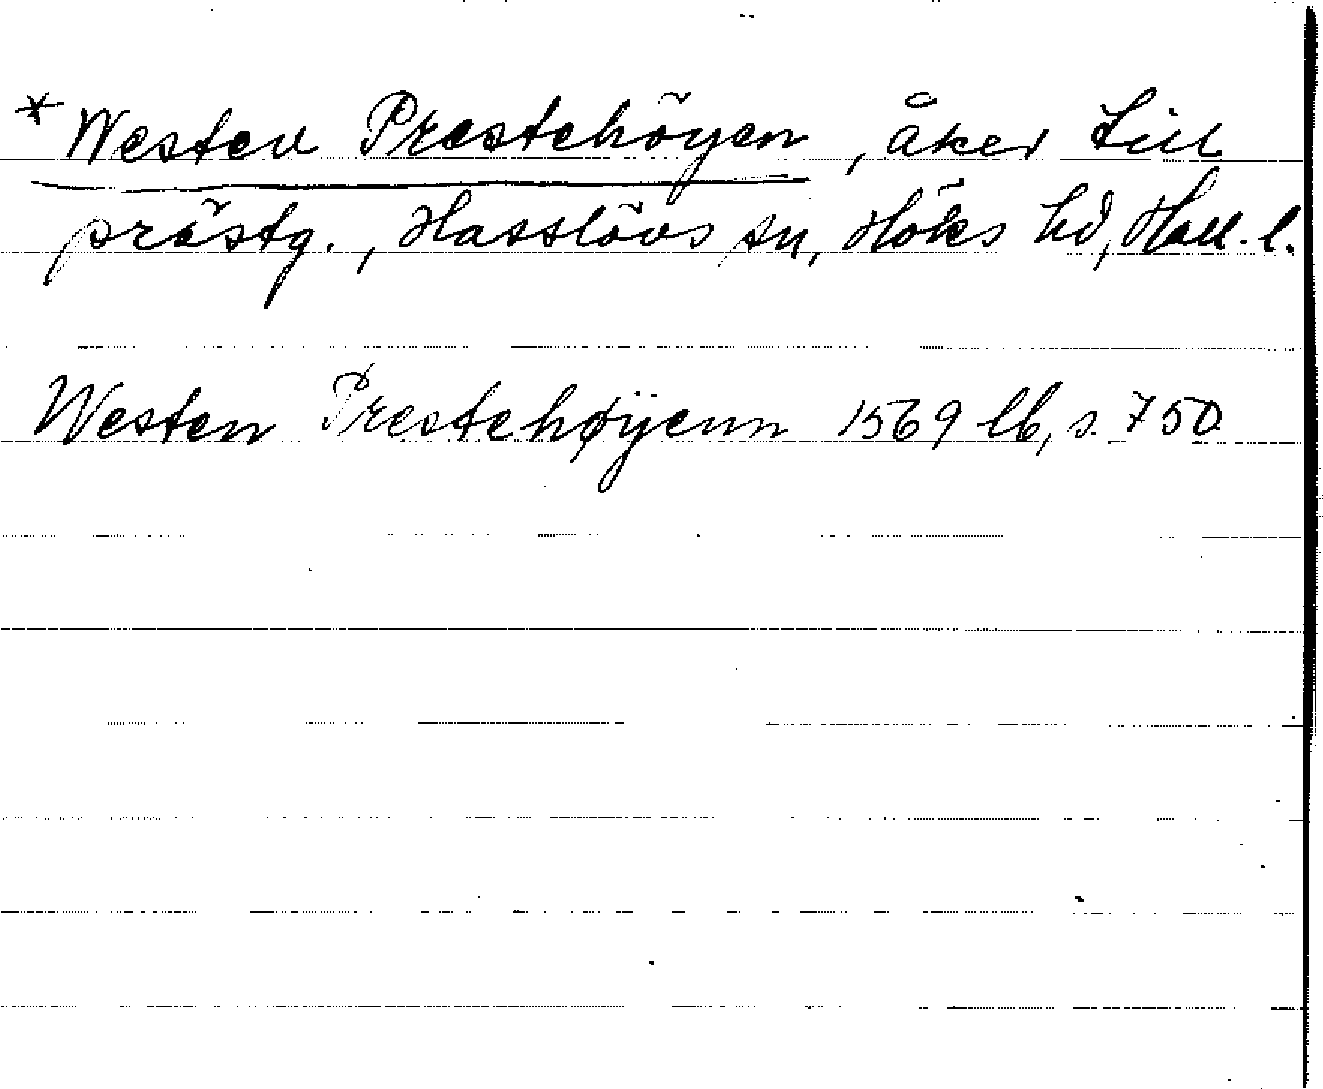 *Westen Prestehöyen, åker till
prästg., Hasslövs sn, Höks hd, Hall. l.
Westen Prestehøÿenn 1569 lb, s. 750